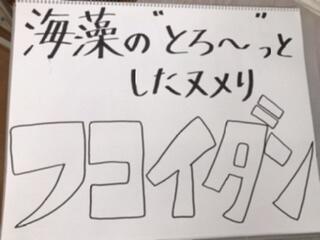 海藻の“とろ〜”っと
したヌメリ
フコイダン